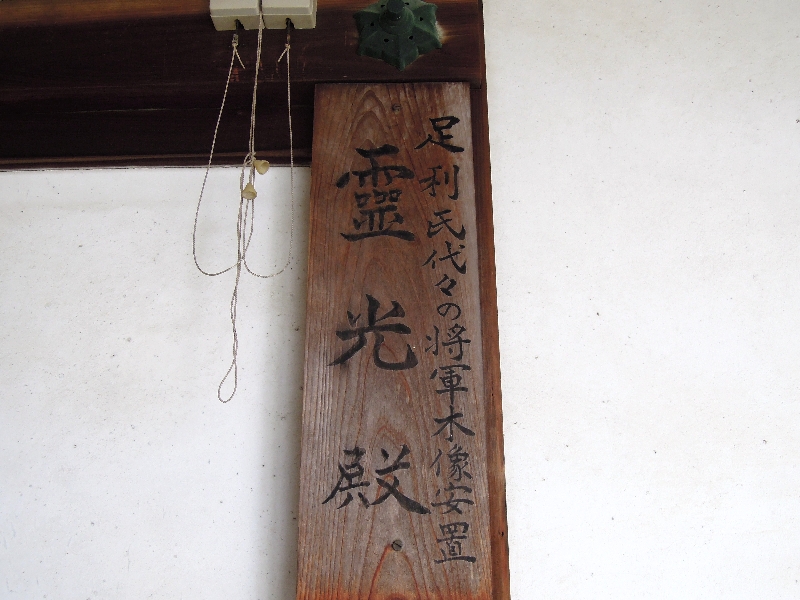 足利氏代々の将軍木像安置
靈光殿